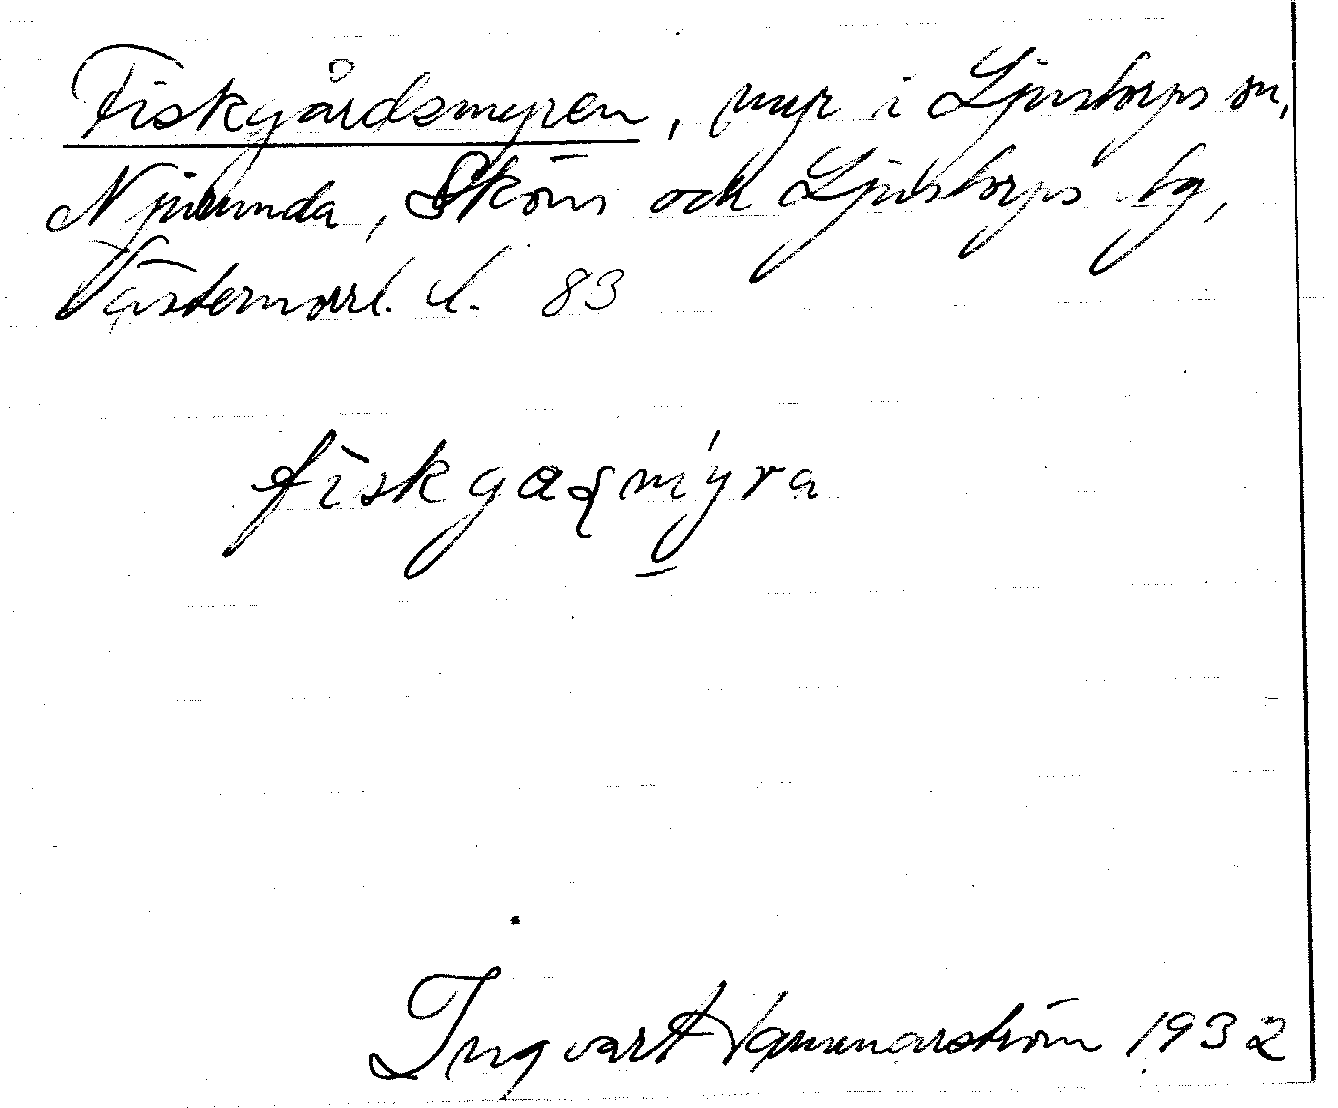 Fiskgårdsmyren, myr i Ljustorps sn,
Njurunda, Sköns och Ljustorps tg,
Västernorrl. l. 83
fiskgaʂmýra
Ingvart Hammarström 1932